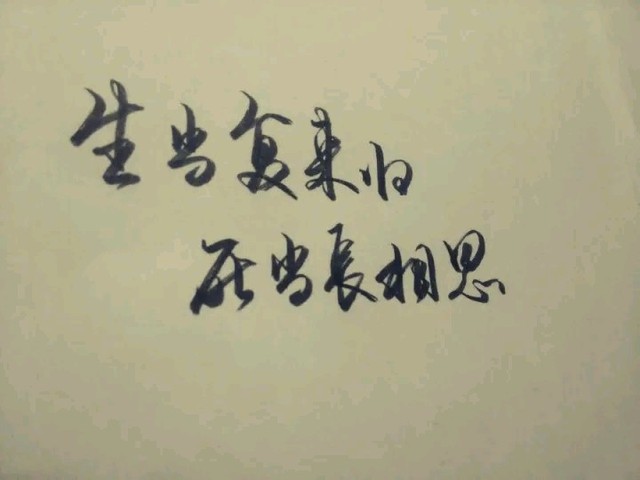 生当复来归
死当長相思